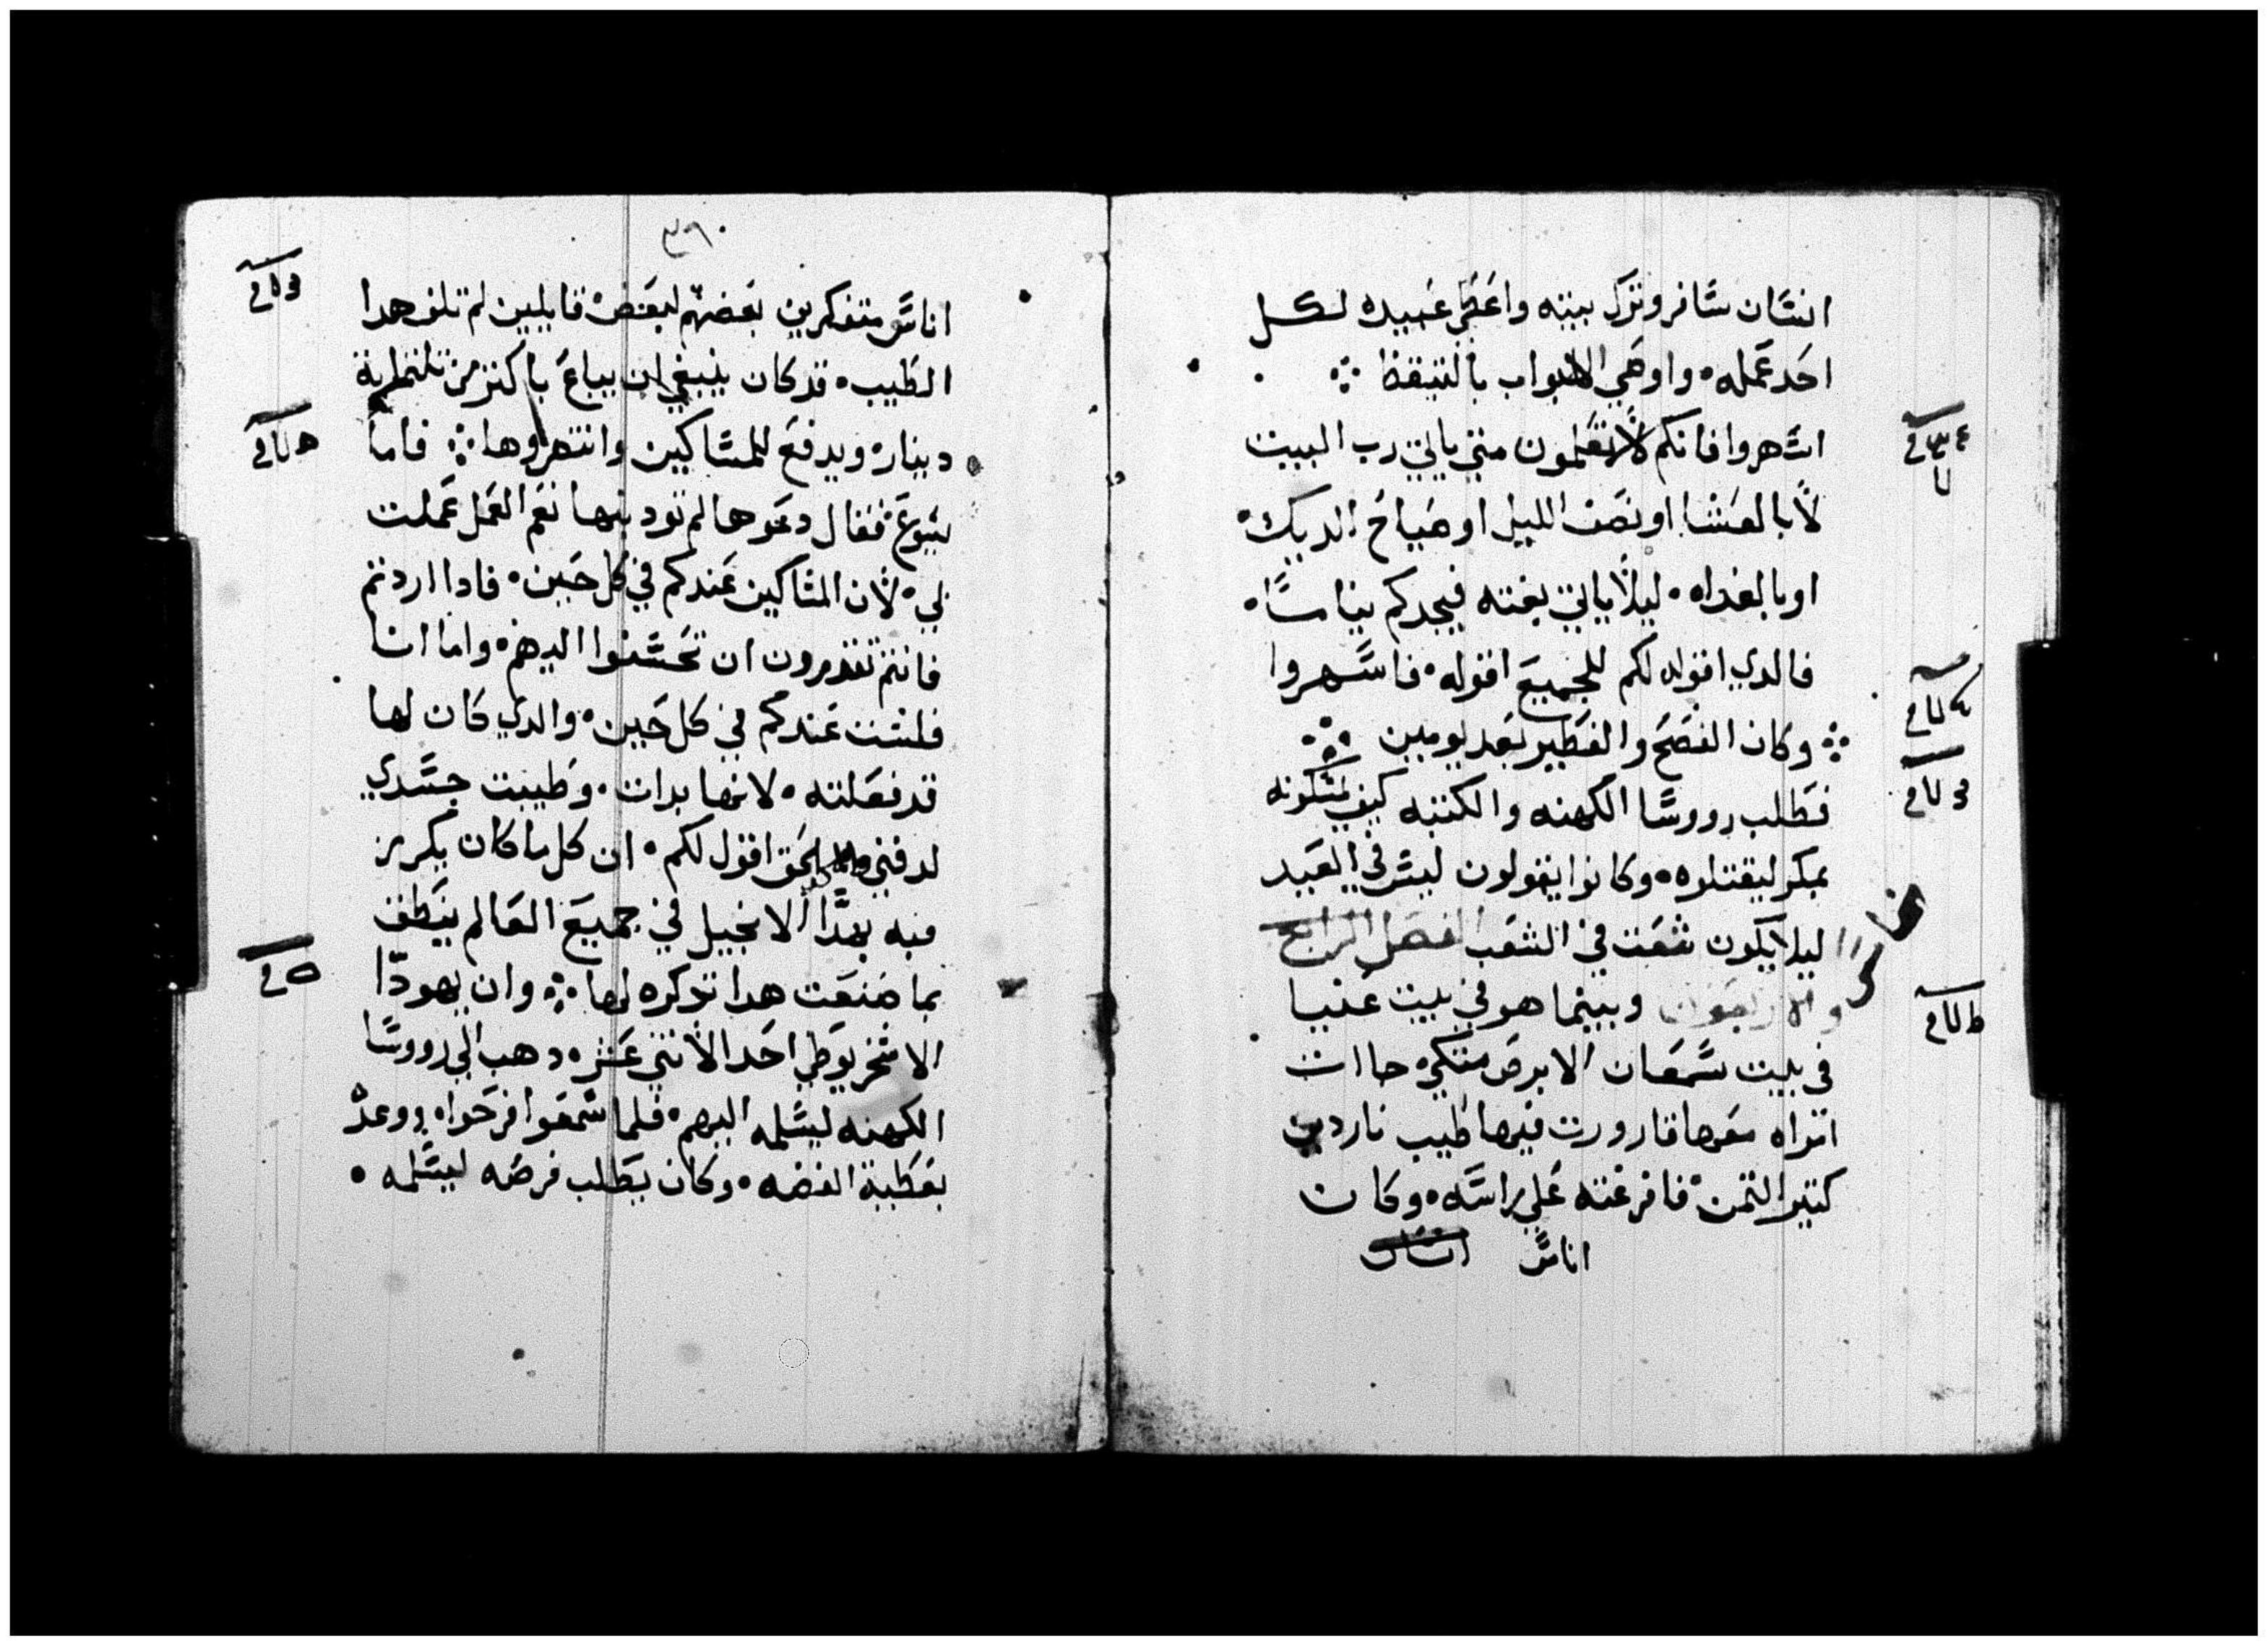 انسان سافر وترك بيته واعطي عبيده لكل
احد عمله، واوصي الابواب بالتيقظ
اسهروا فانكم لا تعلمون متي ياتي رب البيت
لا بالعشا او نصف الليل او صياح الديك
او بالغداه، ليلا ياتي بغته فيجدكم نياما
فالدي اقوله لكم للجميع اقوله، فاسهروا
وكان الفصح والفطير بعد يومين
فطلب رووسا الكهنه والكتبه كيف يمسكونه
بمكر ليقتلوه، وكانوا يقولون ليس في العيد
ليلا يكون شعت في الشعب الفصل الرابع
والاربعون وبينما هو في بيت عنيا
في بيت سمعان الابرص متكي جاات
امراه معها قارورت فيها طيب ناردين
كتير التمن فافرغته علي راسه، وكان
اناس
٣٦٠
اناس متفكرين بعضهم لبعض قايلين لم تلف هدا
الطيب، قد كان ينبغي ان يباع باكتر من تلتماية
دينار ويدفع للمساكين وانتهروها فاما
يسوع فقال دعوها لم تودينها نعم العمل عملت
بي، لان المساكين عندكم في كل حين، فادا اردتم
فانتم تقدرون ان تحسنوا اليهم، واما انا
فلست عندكم في كل حين، والدي كان لها
قد فعلته، لانها بدات، وطيبت جسدي
لدفني الحق اقول لكم، ان كل ما كان يكرز
فيه بهدا الانجيل في جميع العالم ينطق
بما صنعت هدا تدكره لها وان يهودا
الاسخريوطي احد الاتني عشر، دهب الي رووسا
الكهنه ليسلمه اليهم، فلما سمعوا فرحوا، ووعدو
بعطية الفضه، وكان يطلب فرصه ليسلمه،